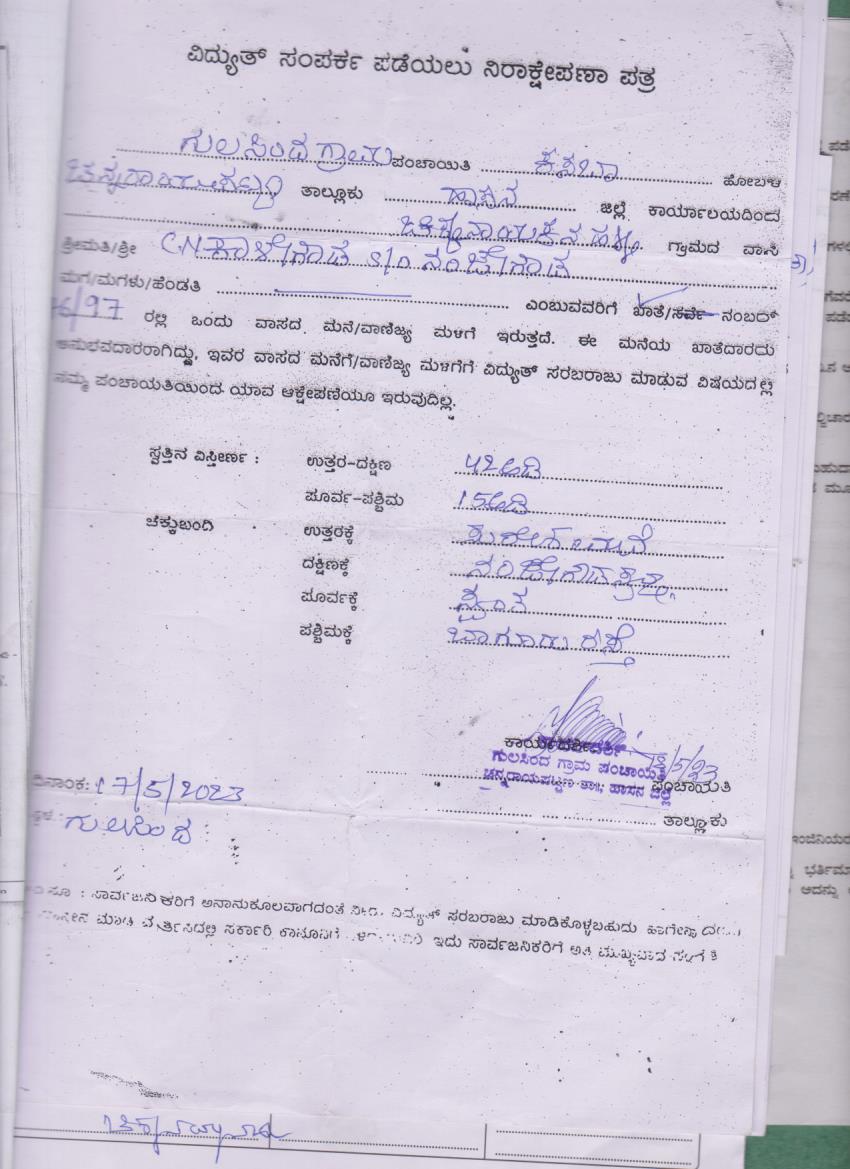 ವಿದ್ಯುತ್ ಸಂಪರ್ಕ ಪಡೆಯಲು ನಿರಾಕ್ಷೇಪಣಾ ಪತ್ರ
ಗುಲಸಿಂದ ಗ್ರಾಮ ಪಂಚಾಯಿತಿ ಕಸಬಾ ಹೋಬಳಿ
ಚನ್ನರಾಯಪಟ್ಟಣ ತಾಲ್ಲೂಕು ಹಾಸನ ಜಿಲ್ಲೆ ಕಾರ್ಯಾಲಯದಿಂದ
ಗ್ರಾಮದ ವಾಸಿ
ಶ್ರೀಮತಿ/ಶ್ರೀ C.N ಕಾಳೇಗೌಡ S/O ನಂಜೇಗೌಡ
ಮಗ/ಮಗಳು/ಹೆಂಡತಿ ಎಂಬುವವರಿಗೆ ಖಾತೆ/ಸರ್ವೆ ನಂಬರ್
/97 ರಲ್ಲಿ ಒಂದು ವಾಸದ ಮನೆ/ವಾಣಿಜ್ಯ ಮಳಿಗೆ ಇರುತ್ತದೆ. ಈ ಮನೆಯ ಖಾತೆದಾರರು
ಅನುಭವದಾರರಾಗಿದ್ದು, ಇವರ ವಾಸದ ಮನೆಗೆ/ವಾಣಿಜ್ಯ ಮಳಿಗೆಗೆ ವಿದ್ಯುತ್ ಸರಬರಾಜು ಮಾಡುವ ವಿಷಯದಲ್ಲಿ
ನಮ್ಮ ಪಂಚಾಯತಿಯಿಂದ ಯಾವ ಆಕ್ಷೇಪಣೆಯೂ ಇರುವುದಿಲ್ಲ.
ಸ್ವತ್ತಿನ ವಿಸ್ತೀರ್ಣ : ಉತ್ತರ-ದಕ್ಷಿಣ 42 ಅಡಿ
ಪೂರ್ವ-ಪಶ್ಚಿಮ 15 ಅಡಿ
ಚೆಕ್ಕುಬಂದಿ ಉತ್ತರಕ್ಕೆ ಮನೆ
ದಕ್ಷಿಣಕ್ಕೆ ನಂಜೇಗೌಡ
ಪೂರ್ವಕ್ಕೆ ಸ್ವಂತ
ಪಶ್ಚಿಮಕ್ಕೆ ಬಾಗೂರು ರಸ್ತೆ
ಕಾರ್ಯದರ್ಶಿ /5/23
ಗುಲಸಿಂದ ಗ್ರಾಮ ಪಂಚಾಯತಿ
ಚನ್ನರಾಯಪಟ್ಟಣ ತಾ||, ಹಾಸನ ಜಿಲ್ಲೆ
ಪಂಚಾಯತಿ
ದಿನಾಂಕ: 17/5/2023
ತಾಲ್ಲೂಕು
ಗುಲಸಿಂದ
: ಸಾರ್ವಜನಿಕರಿಗೆ ಅನಾನುಕೂಲವಾಗದಂತೆ ವಿದ್ಯುತ್ ಸರಬರಾಜು ಮಾಡಿಕೊಳ್ಳಬಹುದು
ಸರ್ಕಾರಿ ಇದು ಸಾರ್ವಜನಿಕರಿಗೆ ಅತಿ ಮುಖ್ಯವಾದ